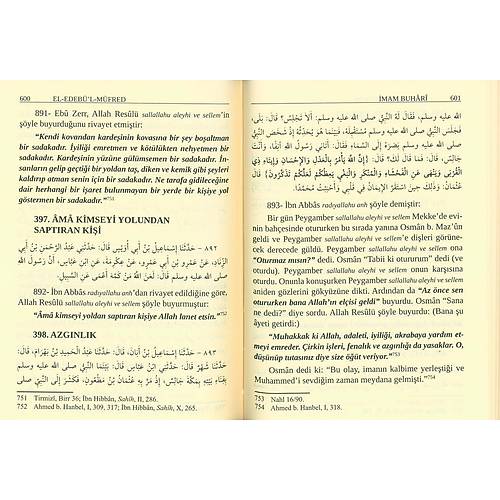 600 EL-EDEBÜ'L-MÜFRED
891- Ebû Zerr, Allah Resûlü sallallahu aleyhi ve sellem'in
şöyle buyurduğunu rivayet etmiştir:
"Kendi kovandan kardeşinin kovasına bir şey boşaltman
bir sadakadır. İyiliği emretmen ve kötülükten nehyetmen bir
sadakadır. Kardeşinin yüzüne gülümsemen bir sadakadır. İn-
sanların gelip geçtiği bir yoldan taş, diken ve kemik gibi şeyleri
kaldırıp atman senin için bir sadakadır. Ne tarafa gidileceğine
dair herhangi bir işaret bulunmayan bir yerde bir kişiye yol
göstermen bir sadakadır."751
397. ÂMÂ KİMSEYİ YOLUNDAN
SAPTIRAN KİŞİ
٨٩٢ - حَدَّثَنَا إِسْمَاعِيلُ بْنُ أَبِي أُوَيْسٍ قَالَ: حَدَّثَنِي عَبْدُ الرَّحْمَنِ بْنُ أَبِي
الزِّنَادِ، عَنْ عَمْرِو بْنِ أَبِي عَمْرٍو، عَنْ عِكْرِمَةَ، عَنِ ابْنِ عَبَّاسٍ، أَنَّ رَسُولَ اللَّهِ
صلى الله عليه وسلم قَالَ: لَعَنَ اللَّهُ مَنْ كَمَّهَ أَعْمَى عَنِ السَّبِيلِ.
892- İbn Abbâs radıyallahu anh'dan rivayet edildiğine göre,
Allah Resûlü sallallahu aleyhi ve sellem şöyle buyurmuştur:
"Âmâ kimseyi yoldan saptıran kişiye Allah lanet etsin."752
398. AZGINLIK
٨٩٣ - حَدَّثَنَا إِسْمَاعِيلُ بْنُ أَبَانَ، قَالَ: حَدَّثَنَا عَبْدُ الْحَمِيدِ بْنُ بَهْرَامَ، قَالَ:
حَدَّثَنَا شَهْرٌ قَالَ: حَدَّثَنِي ابْنُ عَبَّاسٍ قَالَ: بَيْنَمَا النَّبِيُّ صلى الله عليه وسلم
بِفِنَاءِ بَيْتِهِ بِمَكَّةَ جَالِسٌ، إِذْ مَرَّ بِهِ عُثْمَانُ بْنُ مَظْعُونٍ، فَكَشَرَ إِلَى النَّبِيِّ صلى
751 Tirmizî, Birr 36; İbn Hibbân, Sahîh, II, 286.
752 Ahmed b. Hanbel, I, 309, 317; İbn Hibbân, Sahîh, X, 265.
İMAM BUHÂRÎ 601
الله عليه وسلم، فَقَالَ لَهُ النَّبِيُّ صلى الله عليه وسلم: أَلَا تَجْلِسُ؟ قَالَ: بَلَى،
فَجَلَسَ النَّبِيُّ صلى الله عليه وسلم مُسْتَقْبِلَهُ، فَبَيْنَمَا هُوَ يُحَدِّثُهُ إِذْ شَخَصَ النَّبِيُّ
صلى الله عليه وسلم بَصَرَهُ إِلَى السَّمَاءِ فَقَالَ: أَتَانِي رَسُولُ اللَّهِ آنِفًا، وَأَنْتَ
جَالِسٌ، قَالَ: فَمَا قَالَ لَكَ؟ قَالَ: {إِنَّ اللَّهَ يَأْمُرُ بِالْعَدْلِ وَالْإِحْسَانِ وَإِيتَاءِ ذِي
الْقُرْبَى وَيَنْهَى عَنِ الْفَحْشَاءِ وَالْمُنْكَرِ وَالْبَغْيِ يَعِظُكُمْ لَعَلَّكُمْ تَذَكَّرُونَ} قَالَ
عُثْمَانُ: وَذَلِكَ حِينَ اسْتَقَرَّ الْإِيمَانُ فِي قَلْبِي وَأَحْبَبْتُ مُحَمَّدًا.
893- İbn Abbâs radıyallahu anh şöyle demiştir:
Bir gün Peygamber sallallahu aleyhi ve sellem Mekke'de evi-
nin bahçesinde otururken bu sırada yanına Osmân b. Maz'ûn
geldi ve Peygamber sallallahu aleyhi ve sellem'e dişleri görüne-
cek derecede güldü. Peygamber sallallahu aleyhi ve sellem ona
"Oturmaz mısın?" dedi. Osmân "Tabii ki otururum" dedi (ve
oturdu). Peygamber sallallahu aleyhi ve sellem onun karşısına
oturdu. Onunla konuşurken Peygamber sallallahu aleyhi ve sellem
aniden gözlerini gökyüzüne dikti. Ardından da "Az önce sen
otururken bana Allah'ın elçisi geldi" buyurdu. Osmân "Sana
ne dedi?" diye sordu. Allah Resûlü şöyle buyurdu: (Bana şu
âyeti getirdi:)
"Muhakkak ki Allah, adaleti, iyiliği, akrabaya yardım et-
meyi emreder. Çirkin işleri, fenalık ve azgınlığı da yasaklar. O,
düşünüp tutasınız diye size öğüt veriyor."753
Osmân dedi ki: "Bu olay, imanın kalbime yerleştiği ve
Muhammed'i sevdiğim zaman meydana gelmişti."754
753 Nahl 16/90.
754 Ahmed b. Hanbel, I, 318.